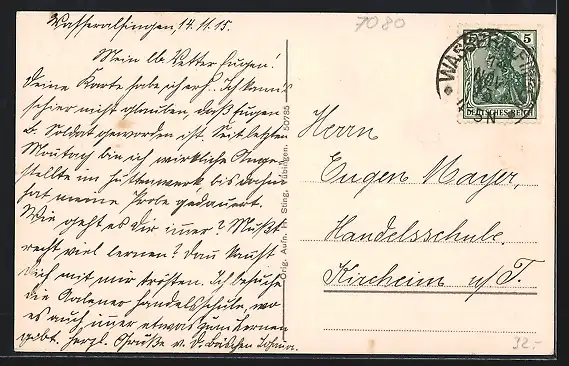 Wasseralfingen 14.11.15.
7080
Mein lb. Vetter Eugen!
Deine Karte habe ich erh. Ich kann's
schier nicht glauben, daß Eugen
b. Soldat geworden ist. Seit letzten
Montag bin ich wirkliche Ange-
stellte im Hüttenwerk, bis dahin
hat meine Probe gedauert.
Wie geht es Dir immer? Mußt
recht viel lernen? Dann kannst
Dich mit mir trösten. Ich besuche
die Aalener Handelsschule, wo
es auch immer etwas zum Lernen
gibt. Herzl. Grüße v. d. Bäschen
Orig. Aufn. H. Sting, Tübingen. 50785
5
WASSERALFINGEN
NOV.
5-N
DEUTSCHES REICH
Herrn
Eugen Mayer,
Handelsschule.
Kircheim u/T.
32,-